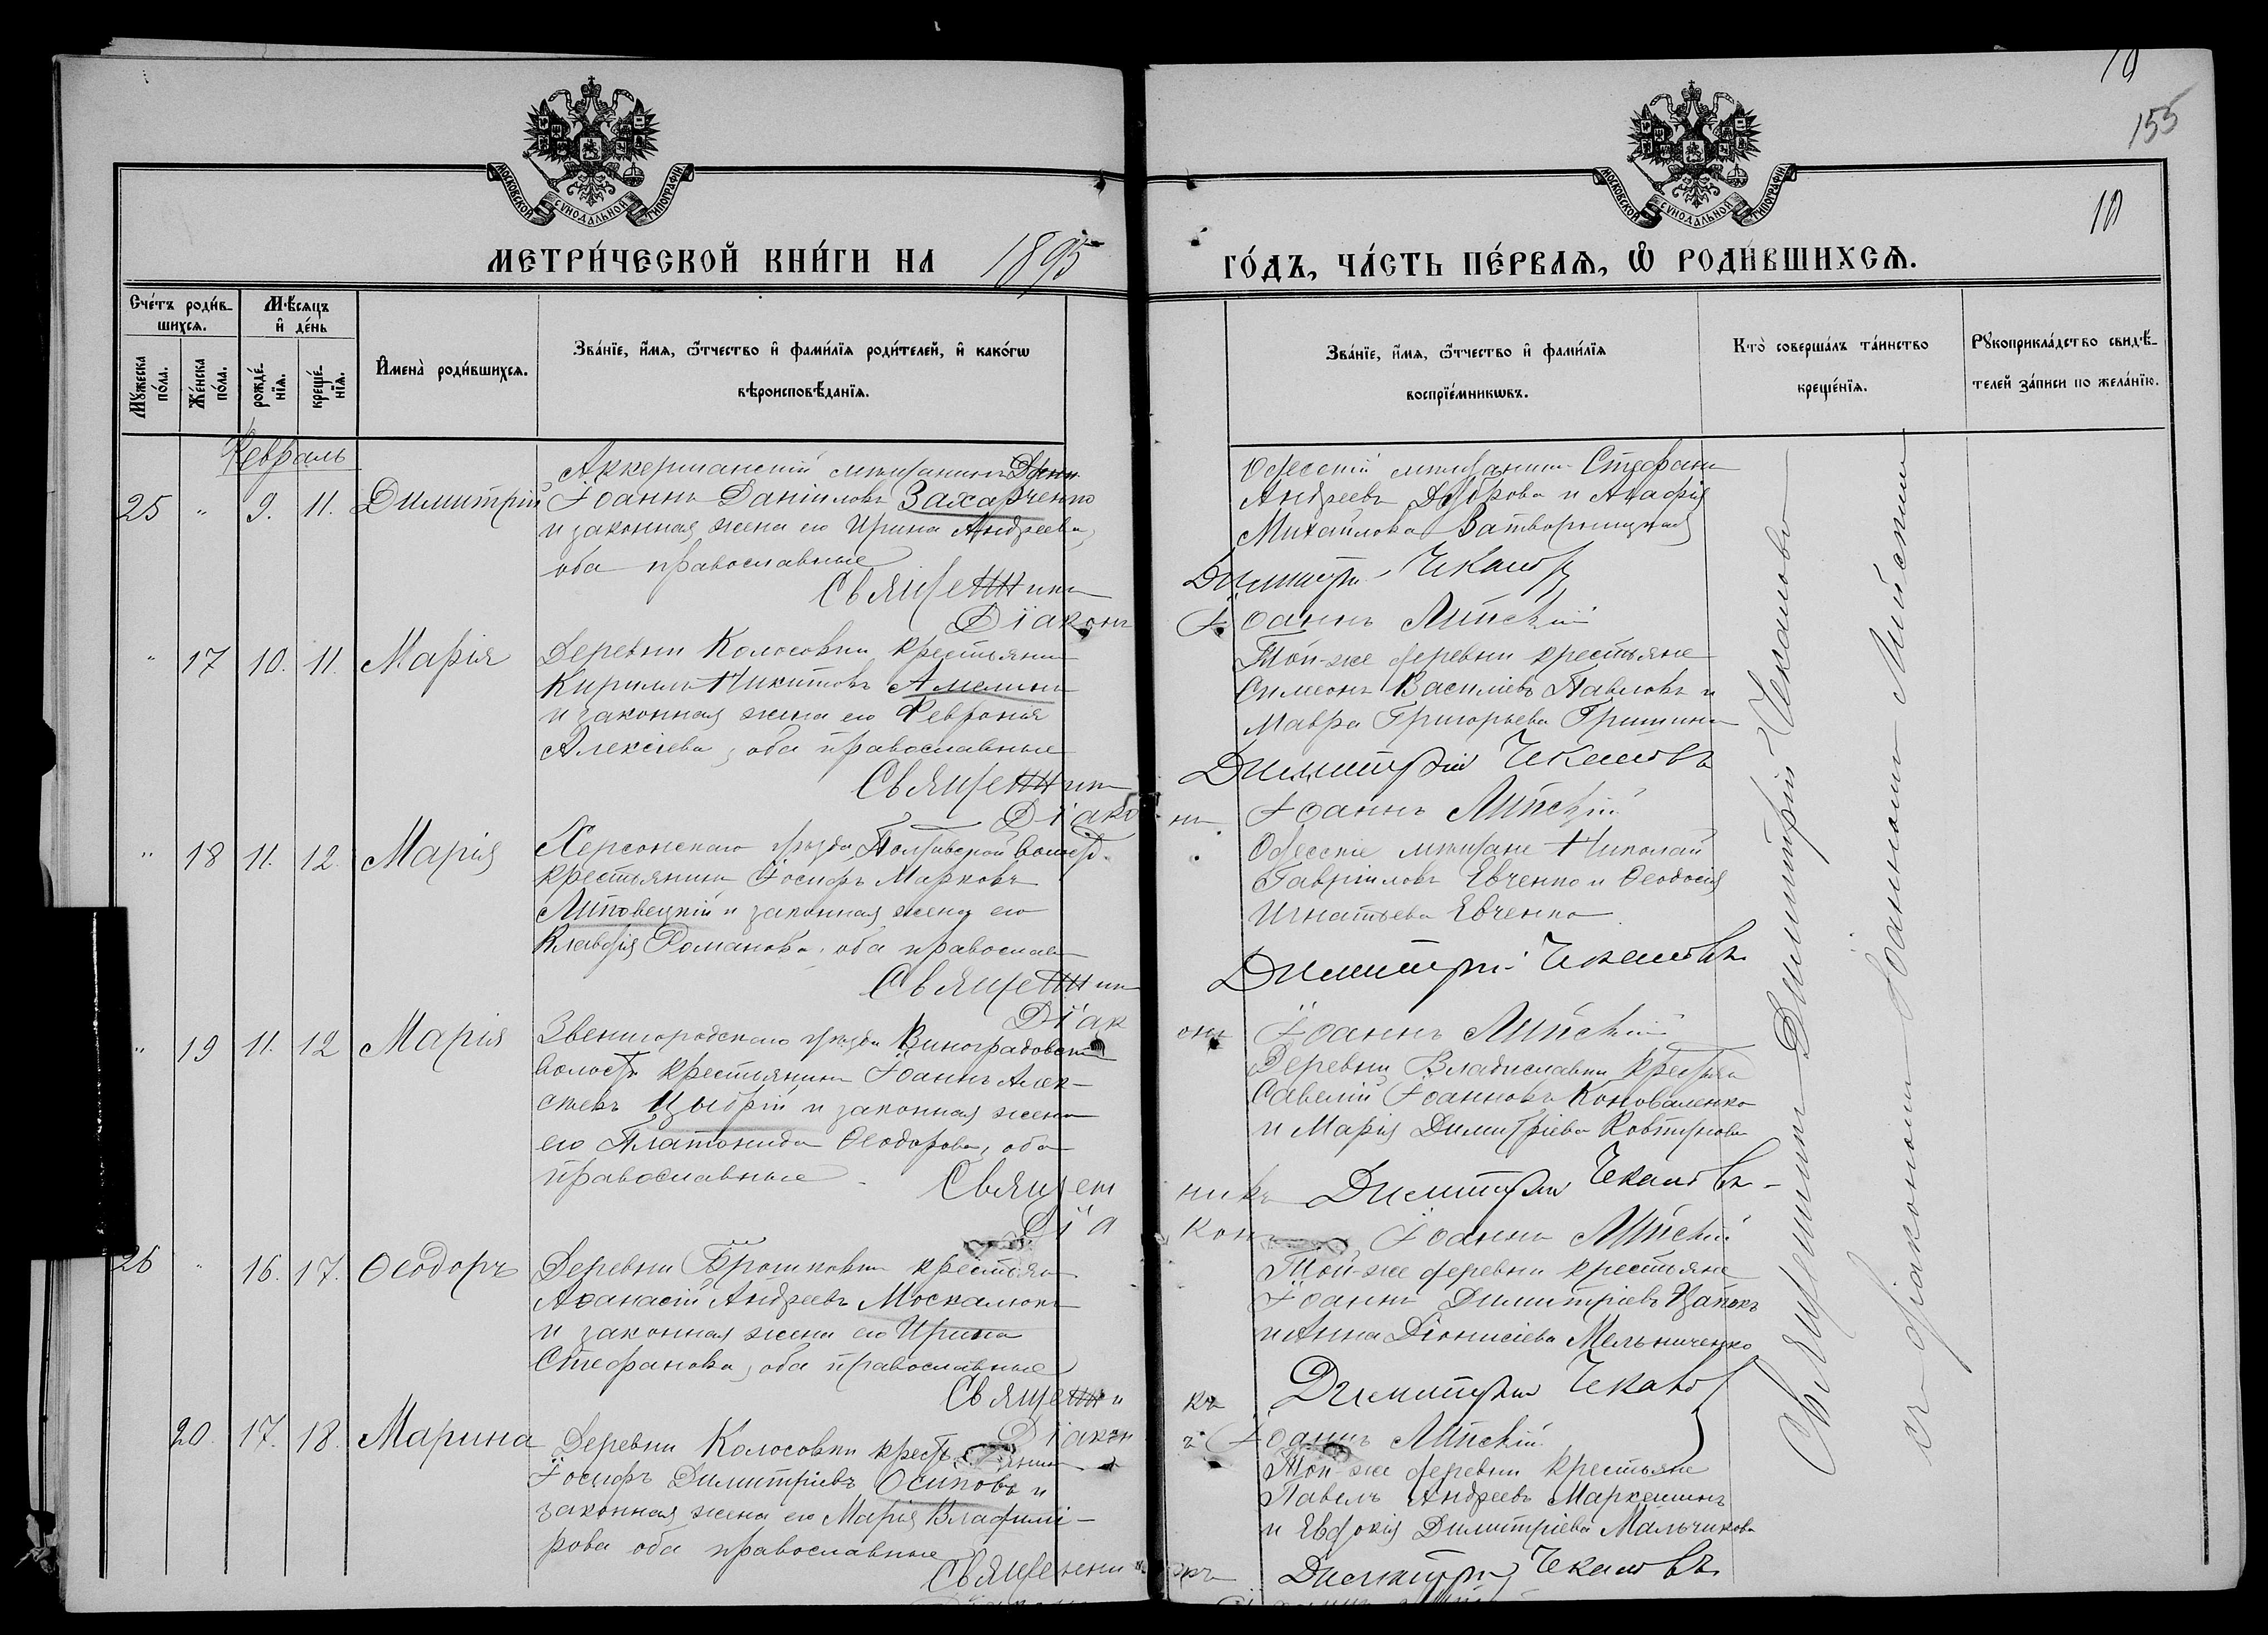 10
155
10
МОСКОВСКОЙ СѴНОДАЛЬНОЙ ТИПОГРАФІИ
МОСКОВСКОЙ СѴНОДАЛЬНОЙ ТИПОГРАФІИ
МЕТРИ́ЧЕСКОЙ КНИ́ГИ НА 1895
ГО́ДЪ, ЧА́СТЬ ПЕ́РВАѦ, Ѡ҆ РОДИ́ВШИХСѦ.
Сче́тъ роди́в-
шихсѧ.
Мꙋ́жеска по́ла.
Же́нска по́ла.
Мѣ́сѧцъ и҆ де́нь
рожде́-нїѧ.
креще́-нїѧ.
И҆мена̀ роди́вшихсѧ.
Зва́нїе, и҆́мѧ, ѻ҆́тчество и҆ фами́лїѧ роди́телей, и҆ како́гѡ
вѣроисповѣ́данїѧ.
Зва́нїе, и҆́мѧ, ѻ҆́тчество и҆ фами́лїѧ
воспрїе́мникѡвъ.
Кто̀ соверша́лъ та́инство
креще́нїѧ.
Рꙋкоприкла́дство свидѣ́-
телей за́писи по жела́нїю.
Февраль
25 " 9. 11. Димитрій
Аккерманскій мѣщанинъ
Іоаннъ Даніиловъ Захарченко
и законная жена его Ирина Андреева,
оба православные
Священникъ
Діаконъ
Одесскій мѣщанинъ Стефанъ
Андреевъ Дуброва и Агафія
Михайлова Затворницкая
Димитрій Чекановъ
Іоаннъ Липскій
" 17 10. 11. Марія
Деревни Колосовки крестьянинъ
Кириллъ Никитовъ Амелинъ
и законная жена его Февронія
Алексіева, оба православные
Священникъ
Діако
Той-же деревни крестьяне
Симеонъ Василіевъ Павловъ и
Мавра Григорьева Гришина
Димитрій Чекановъ
нъ Іоаннъ Липскій
" 18 11. 12. Марія
Херсонскаго уѣзда, Полтавской волост.
крестьянинъ Іосифъ Марковъ
Липовецкій и законная жена его
Клавдія Романова, оба православ
Священникъ
Діак
Одесскіе мѣщане Николай
Гавріиловъ Евченко и Ѳеодосія
Игнатьева Евченко
Димитрій Чекановъ
онъ Іоаннъ Липскій
" 19 11. 12 Марія
Звенигородскаго уѣзда Виноградовской
волости крестьянинъ Іоаннъ Алек-
сѣевъ Цыбрій и законная жена
его Платонида Ѳеодорова, оба
православные
Священ
Діа
Деревни Владиславки крестьяне
Савелій Іоанновъ Коноваленко
и Марія Димитріева Ковтунова
никъ Димитрій Чекановъ
конъ Іоаннъ Липскій
26 " 16. 17. Ѳеодоръ
Деревни крестьян
Аѳанасій Андреевъ Москалюкъ
и законная жена его Ирина
Стефанова, оба православные
Священни
Діакон
Той-же деревни крестьяне
Іоаннъ Димитріевъ Цапокъ
и Анна Діонисіева Мельниченко
къ Димитрій Чекановъ
ъ Іоаннъ Липскій
20. 17. 18. Марина
Деревни Колосовки крестьянинъ
Іосифъ Димитріевъ Осиповъ и
законная жена его Марія Владими-
рова оба православные
Священни
Той-же деревни крестьяне
Павелъ Андреевъ Маркешинъ
и Евдокія Димитріева Мальчикова
къ Димитрій Чекановъ
Священникъ Димитрій Чекановъ
съ діакономъ Іоанномъ Липскимъ